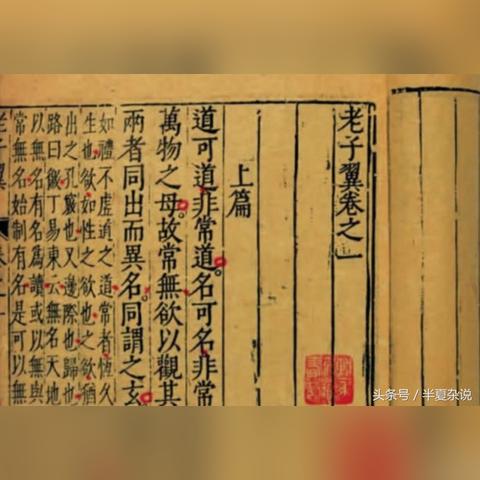 老子翼卷之一
上篇
道可道非常道名可名非常
萬物之母故常無欲以觀其
兩者同出而異名同謂之玄
如禮不虛道之道常者恆久
生也欲如性之欲也之欲猶
出之孔竅也又邊際也歸也
路曰丁易東云無名天地
以無名有名爲讀或以無與
常無名始制有名是可以無
老子翼
头条号 / 半夏杂说